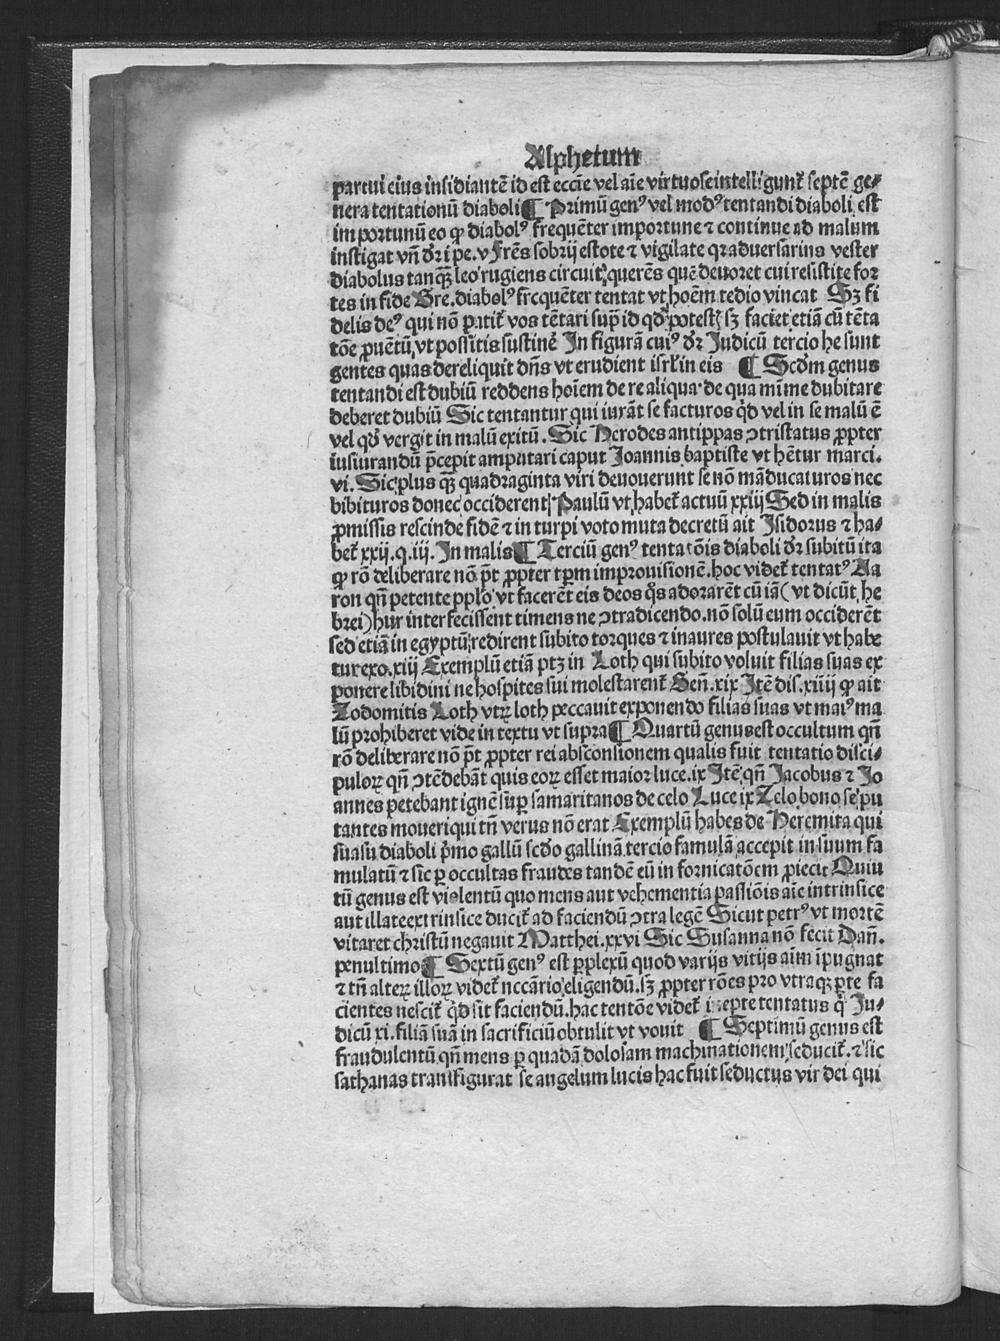 Alphetum
partui eius insidiantẽ id est eccẽ vel aĩe virtuose intelligunt̃ septẽ ge⸗
nera tentationũ diaboli ¶ Primũ genꝰ vel modꝰ tentandi diaboli est
importunũ eo ꝙ diabolꝰ frequẽter importune ⁊ continue ad malum
instigat vñ dr̃ i pe. v Frẽs sobrij estote ⁊ vigilate qr aduersarius vester
diabolus tanqꝫ leo rugiens circuit querẽs quẽ deuoret cui resistite for
tes in fide Gre. diabolꝰ frequẽter tentat vt hoẽm tedio vincat Sꝫ fi
delis deꝰ qui nõ patit̃ vos tẽtari sup̃ id qd̃ potest; sꝫ faciet etiã cũ tẽta
tõe ꝓuẽtũ, vt possitis sustinẽ In figurã cuiꝰ dr̃ Judicũ tercio he sunt
gentes quas dereliquit dñs vt erudient isrl̃ in eis ¶ Scd̃m genus
tentandi est dubiũ reddens hoiẽm de re aliqua de qua mĩme dubitare
deberet dubiũ Sic tentantur qui iurãt se facturos qd̃ vel in se malũ ẽ
vel qd̃ vergit in malũ exitũ. Sic Herodes antippas ↄtristatus ꝓpter
iusiurandũ p̃cepit amputari caput Joannis baptiste vt hẽtur marci.
vi. Sic plus qꝫ quadraginta viri deuouerunt se nõ mãducaturos nec
bibituros donec occiderent Paulũ vt habet̃ actuũ xxiij Sed in malis
ꝓmissis rescinde fidẽ ⁊ in turpi voto muta decretũ ait Isidorus ⁊ ha⸗
bet̃ xxij. q. iii. In malis ¶ Terciũ genꝰ tentatõis diaboli dr̃ subitũ ita
ꝙ rõ deliberare nõ p̃t ꝓpter tp̃m improuisionẽ. hoc videt̃ tentatꝰ Aa
ron qñ petente pplo vt facerẽt eis deos q̃s adorarẽt cũ iã (vt dicũt he
brei) hur interfecissent timens ne ↄtradicendo. nõ solũ eum occiderẽt
sed etiã in egyptũ redirent subito torques ⁊ inaures postulauit vt habe
tur exo. xiij Exemplũ etiã ptꝫ in Loth qui subito voluit filias suas ex
ponere libidini ne hospites sui molestarent̃ Geñ. xix Itẽ dis. xiiij ꝙ ait
Zodomitis Loth vtꝝ loth peccauit exponendo filias suas vt maiꝰ ma
lũ prohiberet vide in textu vt supra ¶ Quartũ genus est occultum qñ
rõ deliberare nõ p̃t ꝓpter rei absconsionem qualis fuit tentatio disci⸗
puloꝝ qñ ↄtẽdebãt quis eoꝝ esset maior luce. ix Itẽ qñ Jacobus ⁊ Jo
annes petebant ignẽ sup̃ samaritanos de celo Luce ix Zelo bono se pu
tantes moueri qui tñ verus nõ erat Exemplũ habes de Heremita qui
suasu diaboli p̃mo gallũ scd̃o gallinã tercio famulã accepit in suum fa
mulatũ ⁊ sic ꝑ occultas fraudes tandẽ eũ in fornicatõem ꝓiecit Quiu
tũ genus est violentũ quo mens aut vehementia passiõis aĩe intrinsice
aut illate extrinsice ducit̃ ad faciendũ ↄtra legẽ Sicut petrꝰ vt mortẽ
vitaret christũ negauit Matthei. xxvi Sic Susanna nõ fecit Dañ.
penultimo ¶ Sextũ genꝰ est ꝑplexũ quod varijs vitijs aĩm ĩpugnat
⁊ tñ alteꝝ illoꝝ videt̃ nccãrio eligendũ. sꝫ ꝓpter rões pro vtraqꝫ ꝑte fa
cientes nescit̃ qd̃ sit faciendũ. hac tentõe videt̃ iepte tentatus q̃ Ju⸗
dicũ xi. filiã suã in sacrificiũ obtulit vt vouit ¶ Septimũ genus est
fraudulentũ qñ mens ꝑ quadã dolosam machinationem seducit̃. ⁊ sic
sathanas transfigurat se angelum lucis hac fuit seductus vir dei qui